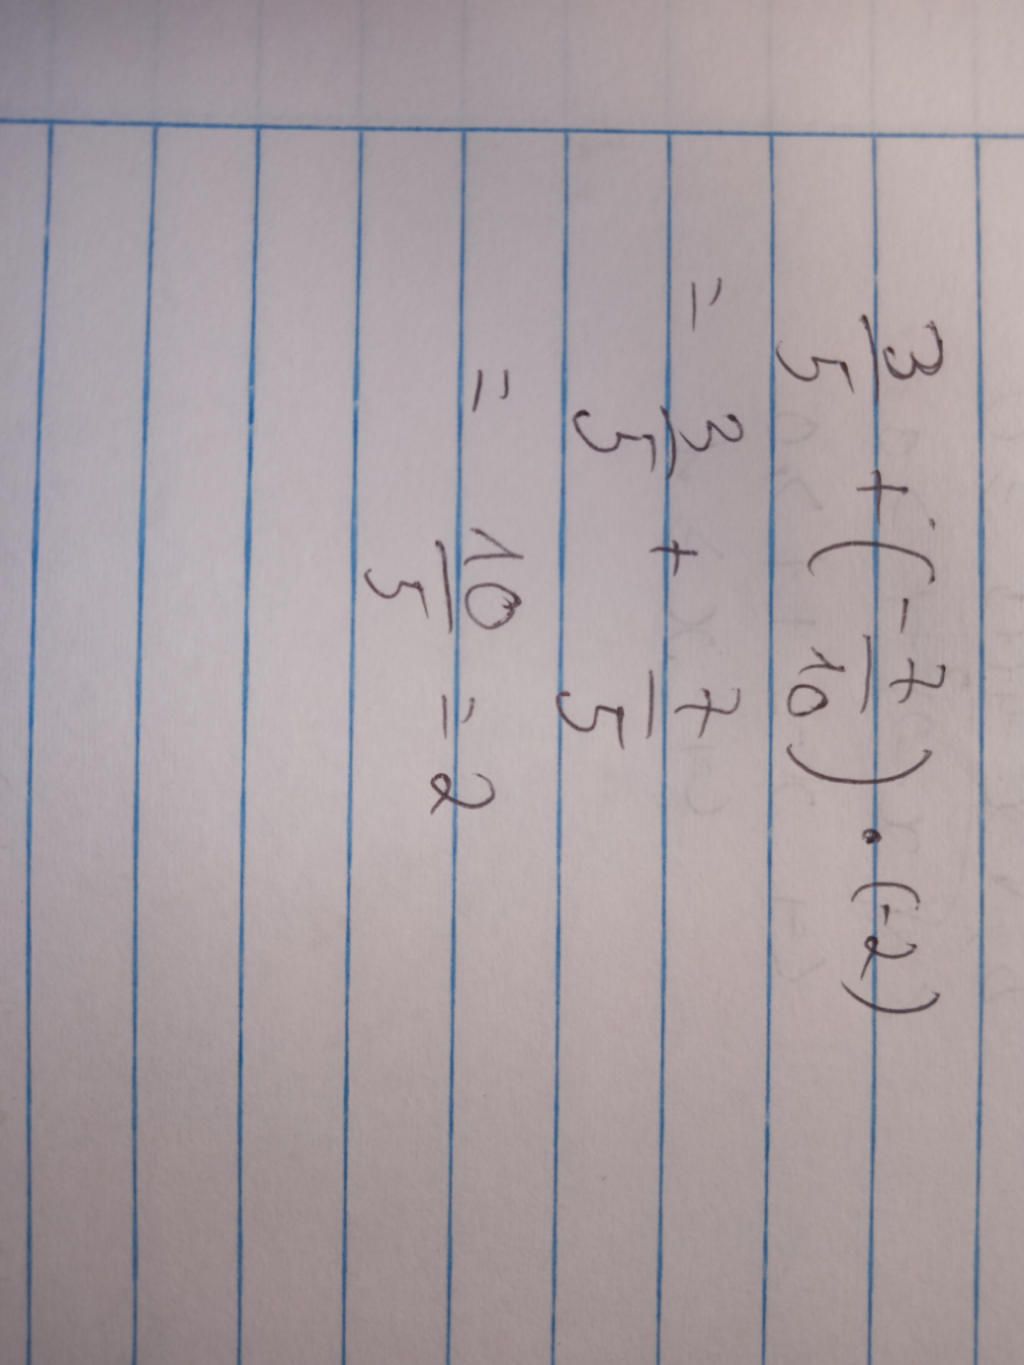 3/5 + (-7/10) · (-2)
= 3/5 + 7/5
= 10/5 = 2